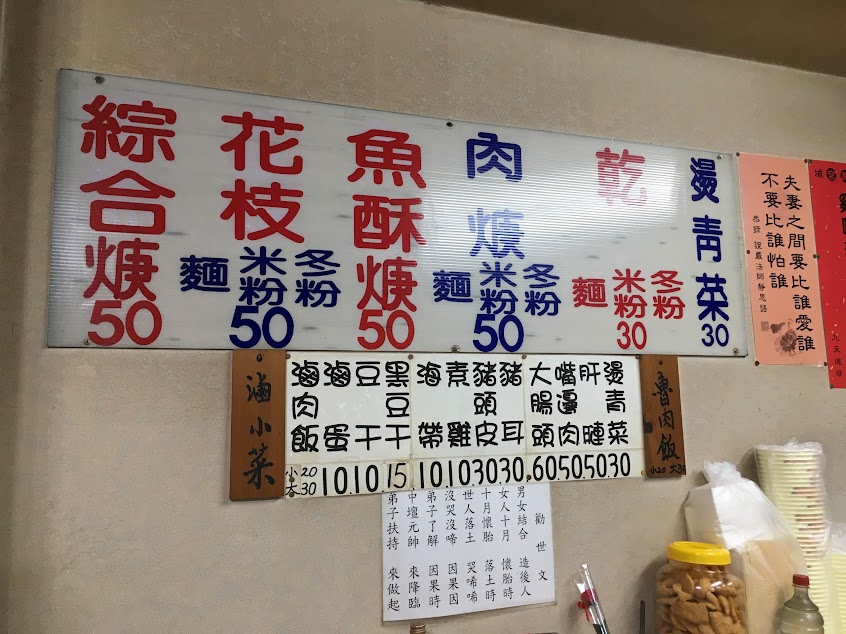 綜合焿50
花枝
麵 米粉 冬粉
50
魚酥焿50
肉焿
麵 米粉 冬粉
50
乾
麵 米粉 冬粉
30
燙青菜30
滷小菜
滷肉飯 小20 大30
滷蛋 10
豆干 10
黑豆干 15
海帶 10
素雞 10
豬頭皮 30
豬耳 30
大腸頭 60
嘴邊肉 50
肝腱 50
燙青菜 30
魯肉飯
小20 大30
夫妻之間要比誰愛誰
不要比誰怕誰
恭錄 證嚴法師靜思語
城
九天道母
勸世文
男女結合 造後人
女人十月 懷胎時
十月懷胎 落土時
世人落土 哭啼啼
沒哭沒啼 因果因
弟子了解 因果時
中壇元帥 來降臨
弟子扶持 來做起